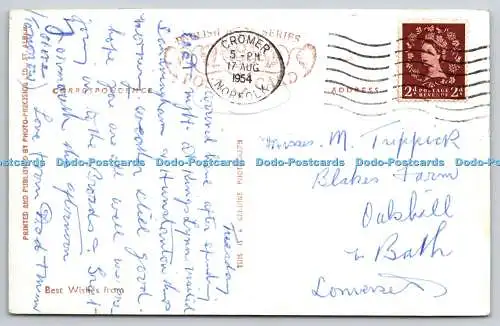 ENGLISH SERIES
CROMER
5 - PM
17 AUG
1954
NORFOLK
POSTAGE REVENUE
2D 2D
CORRESPONDENCE
ADDRESS
PRINTED AND PUBLISHED BY PHOTO-PRECISION LTD ST ALBANS
Best Wishes from
Tuesday
arrived here after spending
last night at Kings Lynn visited
Sandringham & Hunstanton this
morning weather still good.
hope you are all well we are
going to the Broads &
Yarmouth this afternoon
Love from Dad & Mum
Misses M. Trippick
Blakes Farm
Oakhill
Nr Bath
Somerset
Dodo-Postcards Dodo-Postcards Dodo-Postcards Dodo-Postcards Dodo-Postcards Dodo-Postcards